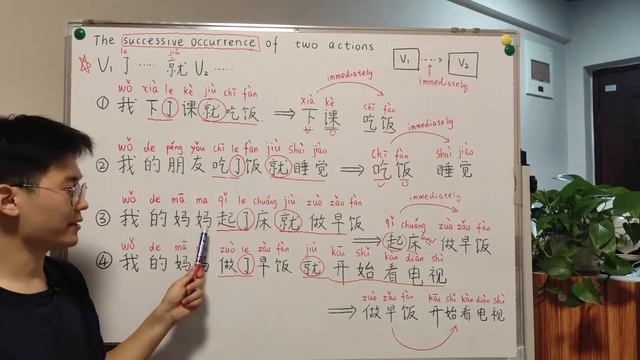 The successive occurrence of two actions
le jiù
☆ V₁ 了 …… 就 V₂ ……
V₁ ----> V₂
immediately
wǒ xià le kè jiù chī fàn
① 我下了课就吃饭. ⇒ 下课 吃饭
xià kè chī fàn
immediately
wǒ de péng yǒu chī le fàn jiù shuì jiào
② 我的朋友吃了饭就睡觉 ⇒ 吃饭 睡觉
chī fàn shuì jiào
immediately
wǒ de mā ma qǐ le chuáng jiù zuò zǎo fàn
③ 我的妈妈起了床就做早饭 ⇒ 起床 做早饭
qǐ chuáng zuò zǎo fàn
immediately
wǒ de mā zuò le zǎo fàn jiù kāi shǐ kàn diàn shì
④ 我的妈 做了早饭就开始看电视
zuò zǎo fàn kāi shǐ kàn diàn shì
⇒ 做早饭 开始看电视